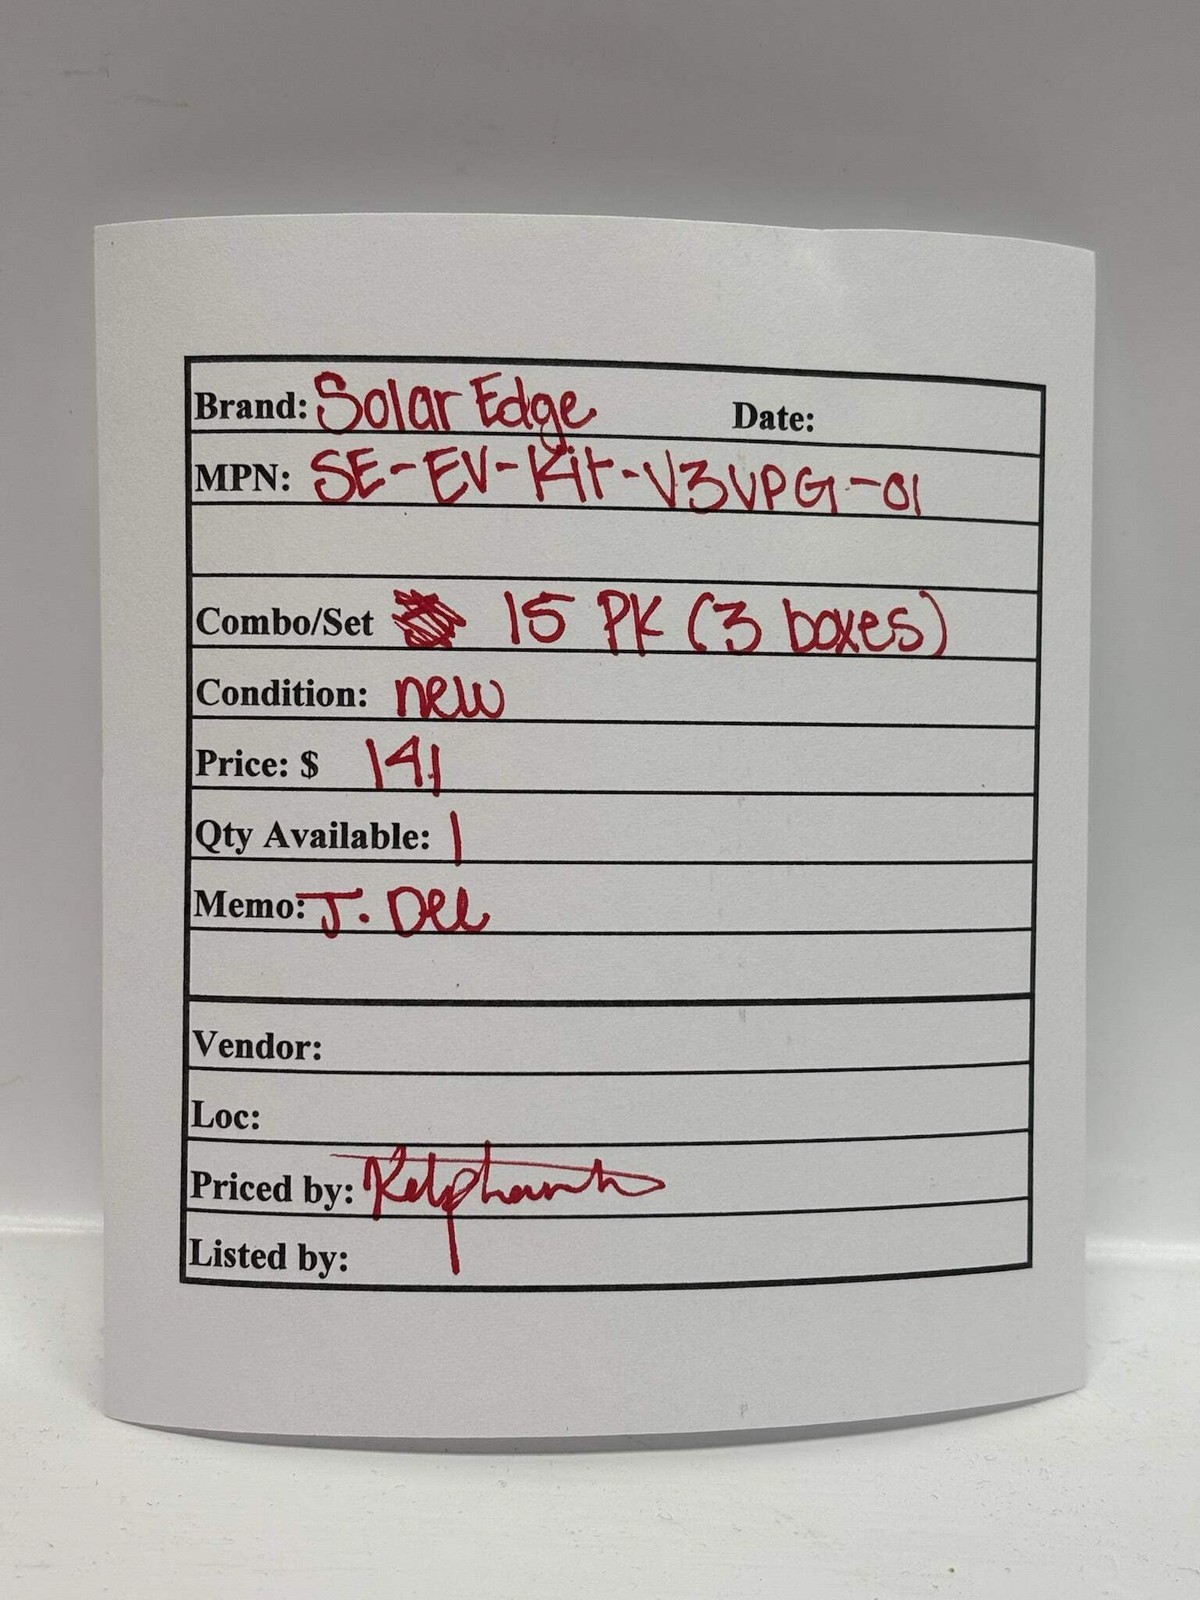 Brand: Solar Edge Date:
MPN: SE-EV-Kit-V3VPG-01
Combo/Set 15 PK (3 boxes)
Condition: new
Price: $ 141
Qty Available: 1
Memo: J. Del
Vendor:
Loc:
Priced by:
Listed by: